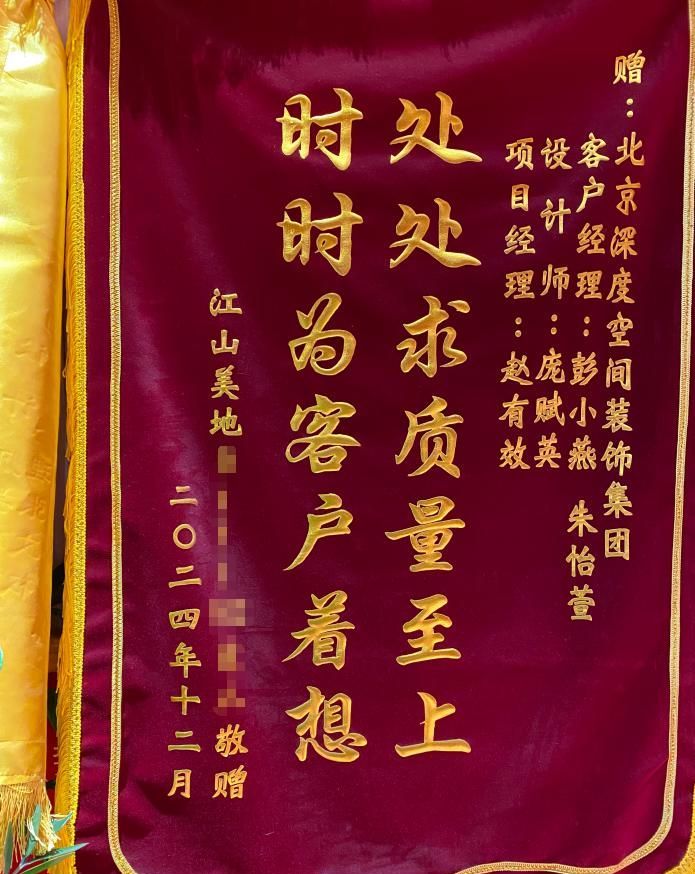 赠：北京深度空间装饰集团
客户经理：彭小燕 朱怡萱
设计师：庞赋英
项目经理：赵有效
处处求质量至上
时时为客户着想
江山美地 敬赠
二〇二四年十二月